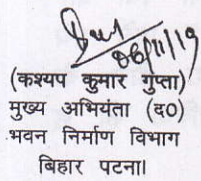 06/11/19
(कश्यप कुमार गुप्ता)
मुख्य अभियंता (द0)
भवन निर्माण विभाग
बिहार पटना।